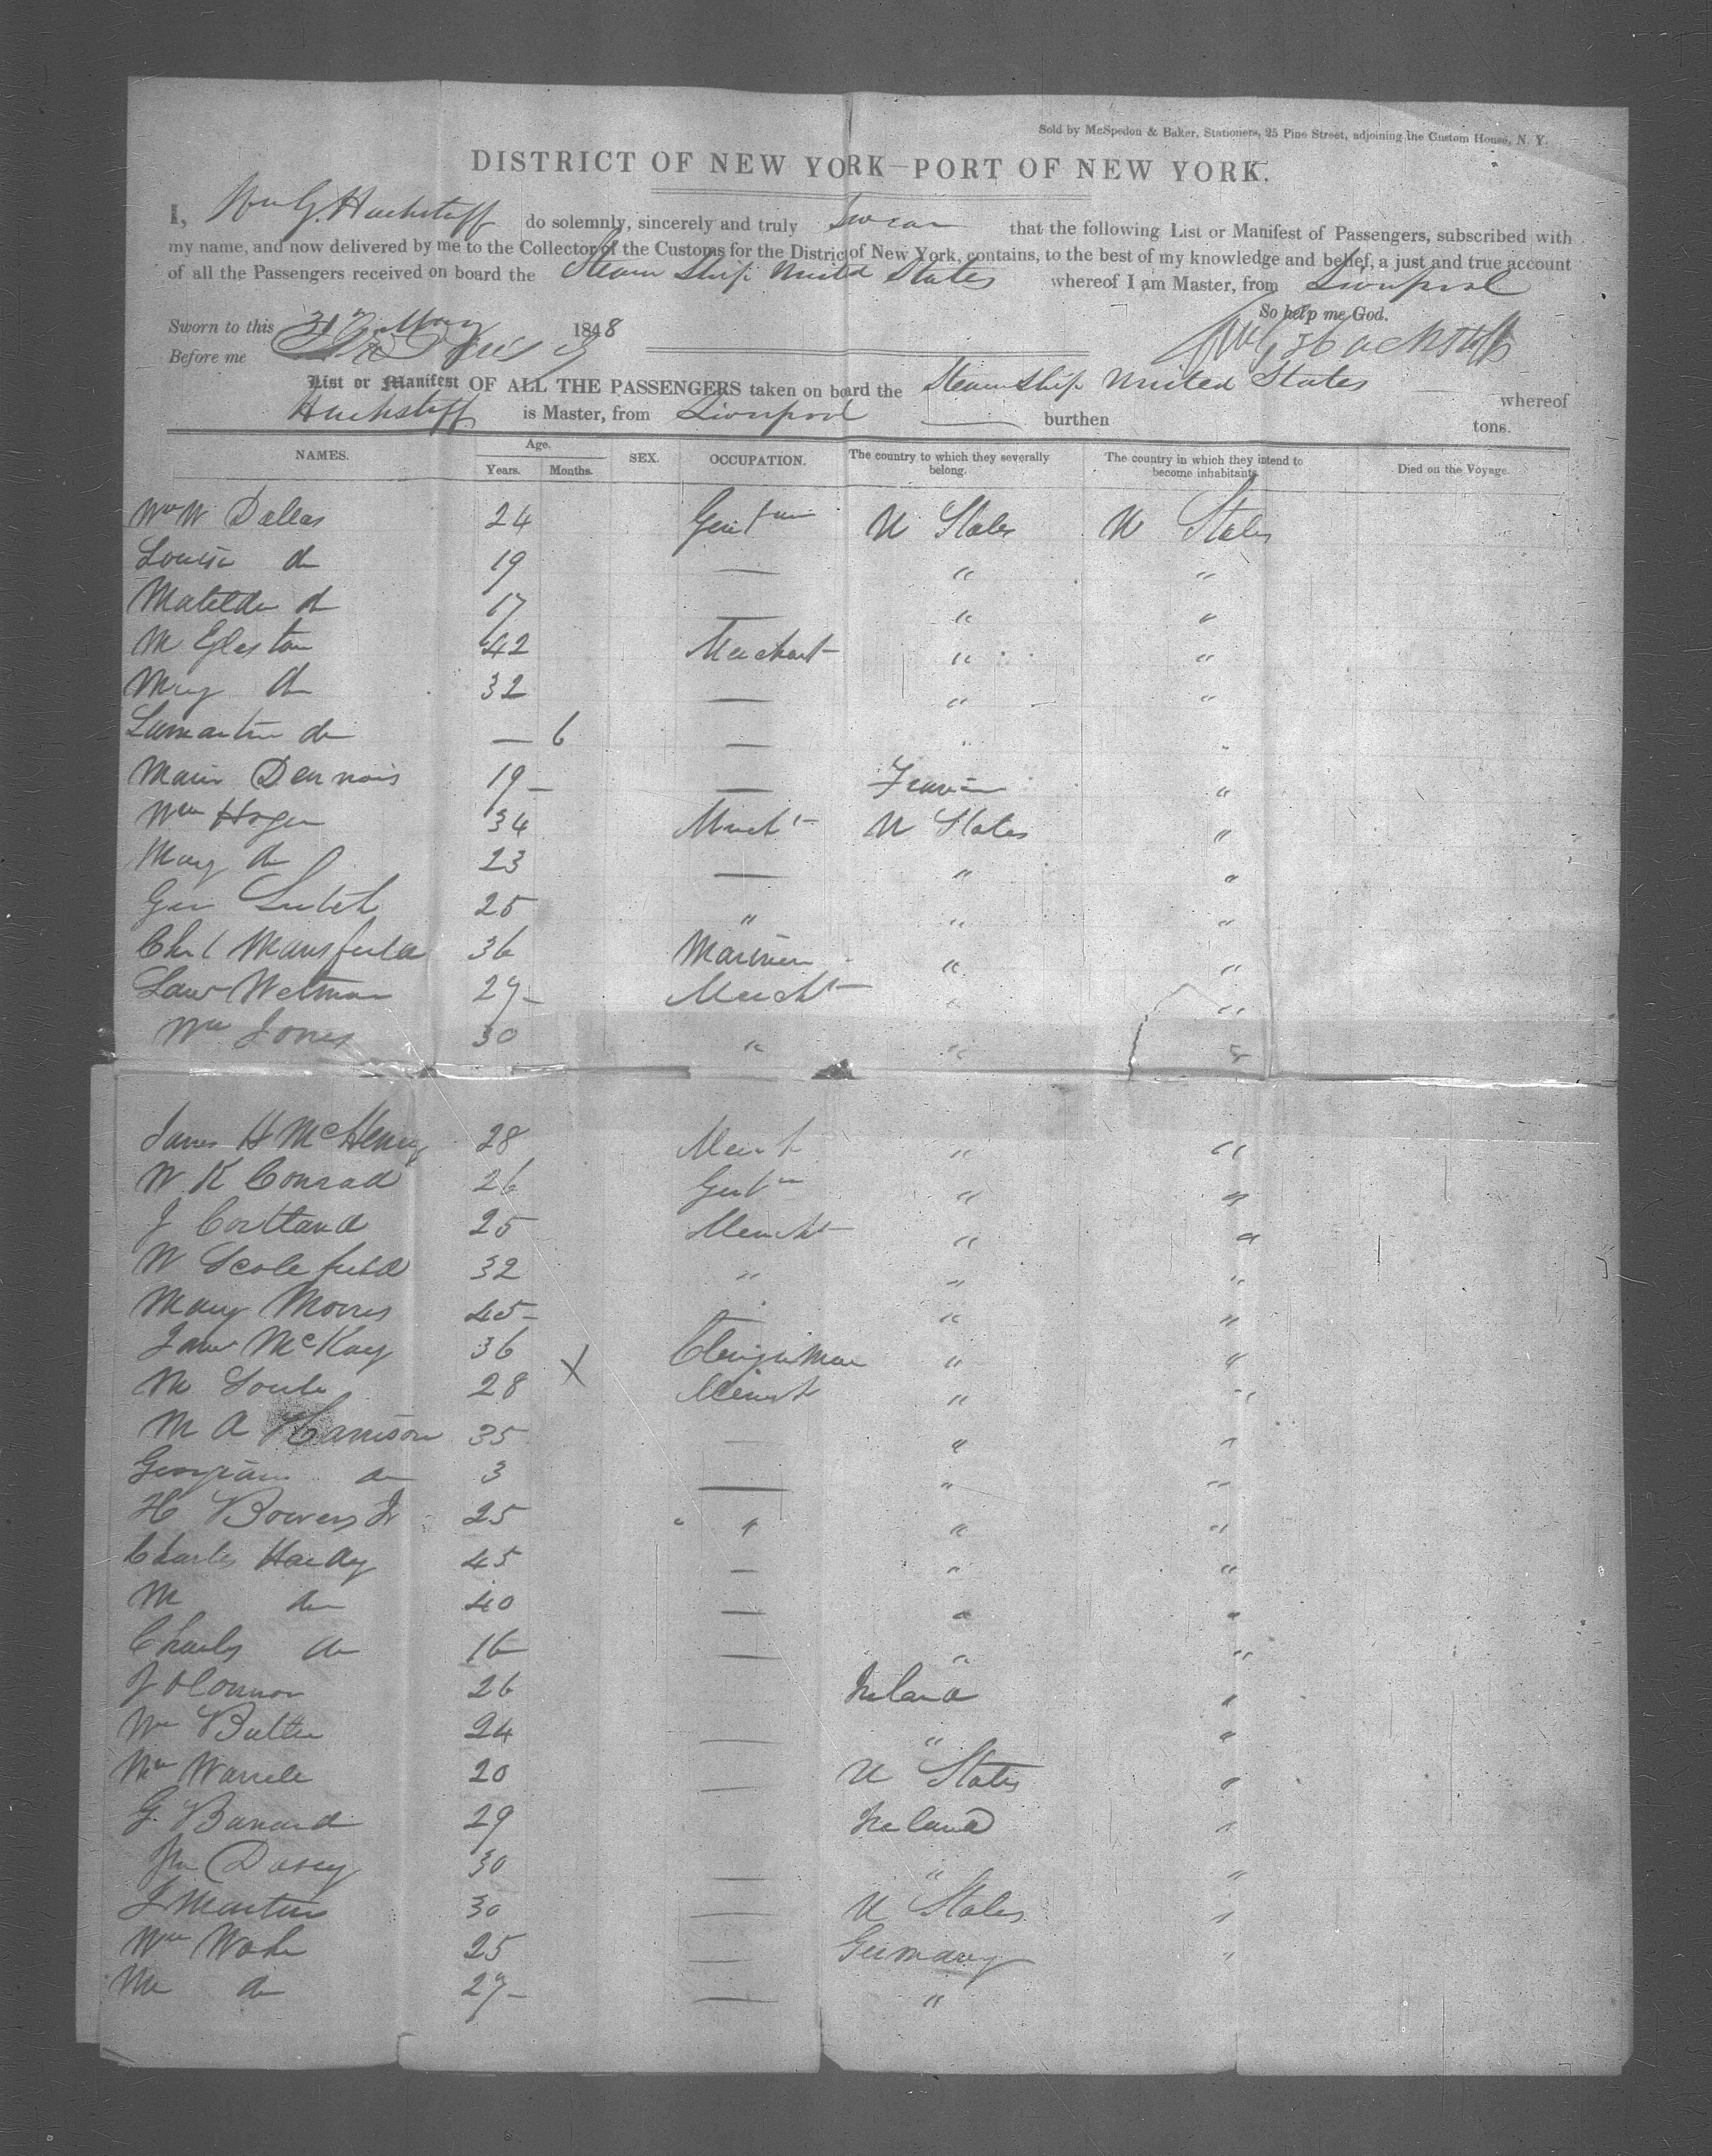 Sold by McSpedon & Baker, Stationers, 25 Pine Street, adjoining the Custom House, N. Y.
DISTRICT OF NEW YORK—PORT OF NEW YORK.
I, Wm G. Hackstaff do solemnly, sincerely and truly Swear that the following List or Manifest of Passengers, subscribed with
my name, and now delivered by me to the Collector of the Customs for the District of New York, contains, to the best of my knowledge and belief, a just and true account
of all the Passengers received on board the Steam Ship United States whereof I am Master, from Liverpool
So help me God.
Sworn to this 31 May 1848
Before me
Wm G Hackstaff
List or Manifest OF ALL THE PASSENGERS taken on board the Steam Ship United States whereof
Hackstaff is Master, from Liverpool burthen tons.
NAMES. Age. Years. Months. SEX. OCCUPATION. The country to which they severally belong. The country in which they intend to become inhabitants. Died on the Voyage.
Wm W Dallas 24 Gentm U States U States
Louisa do 19 — " "
Matilda do 17 — " "
M Egleston 42 Merchant " "
Mary do 32 — " "
Lamartin do — 6 — " "
Marie Dennois 19 — — "
Wm Hogan 34 Mercht U States "
Mary do 23 — " "
Geo 25 " " "
Chs Mansfield 36 Mariner " "
Law Wetman 29 Mercht " "
Wm Jones 30 " " "
James H McHenry 28 Mercht " "
W K Conrad 26 Gentn " "
J Cortland 25 Mercht " "
W Scolefield 32 " " "
Mary Morris 45 — " "
James McKay 36 Clergyman " "
M Soule 28 X Mercht " "
M A Harrison 35 — " "
Georgiana do 3 — " "
H Bowers Jr 25 " " " "
Charles Hardy 45 — " "
M do 40 — " "
Charles do 16 — " "
J OConnor 26 Ireland "
Wm Butler 24 — " "
Wm 20 — U States "
G. Barnard 29 Ireland "
Jno Darcy 30 — " "
J Martin 30 — U States "
Wm 25 — Germany "
Mrs do 27 — "